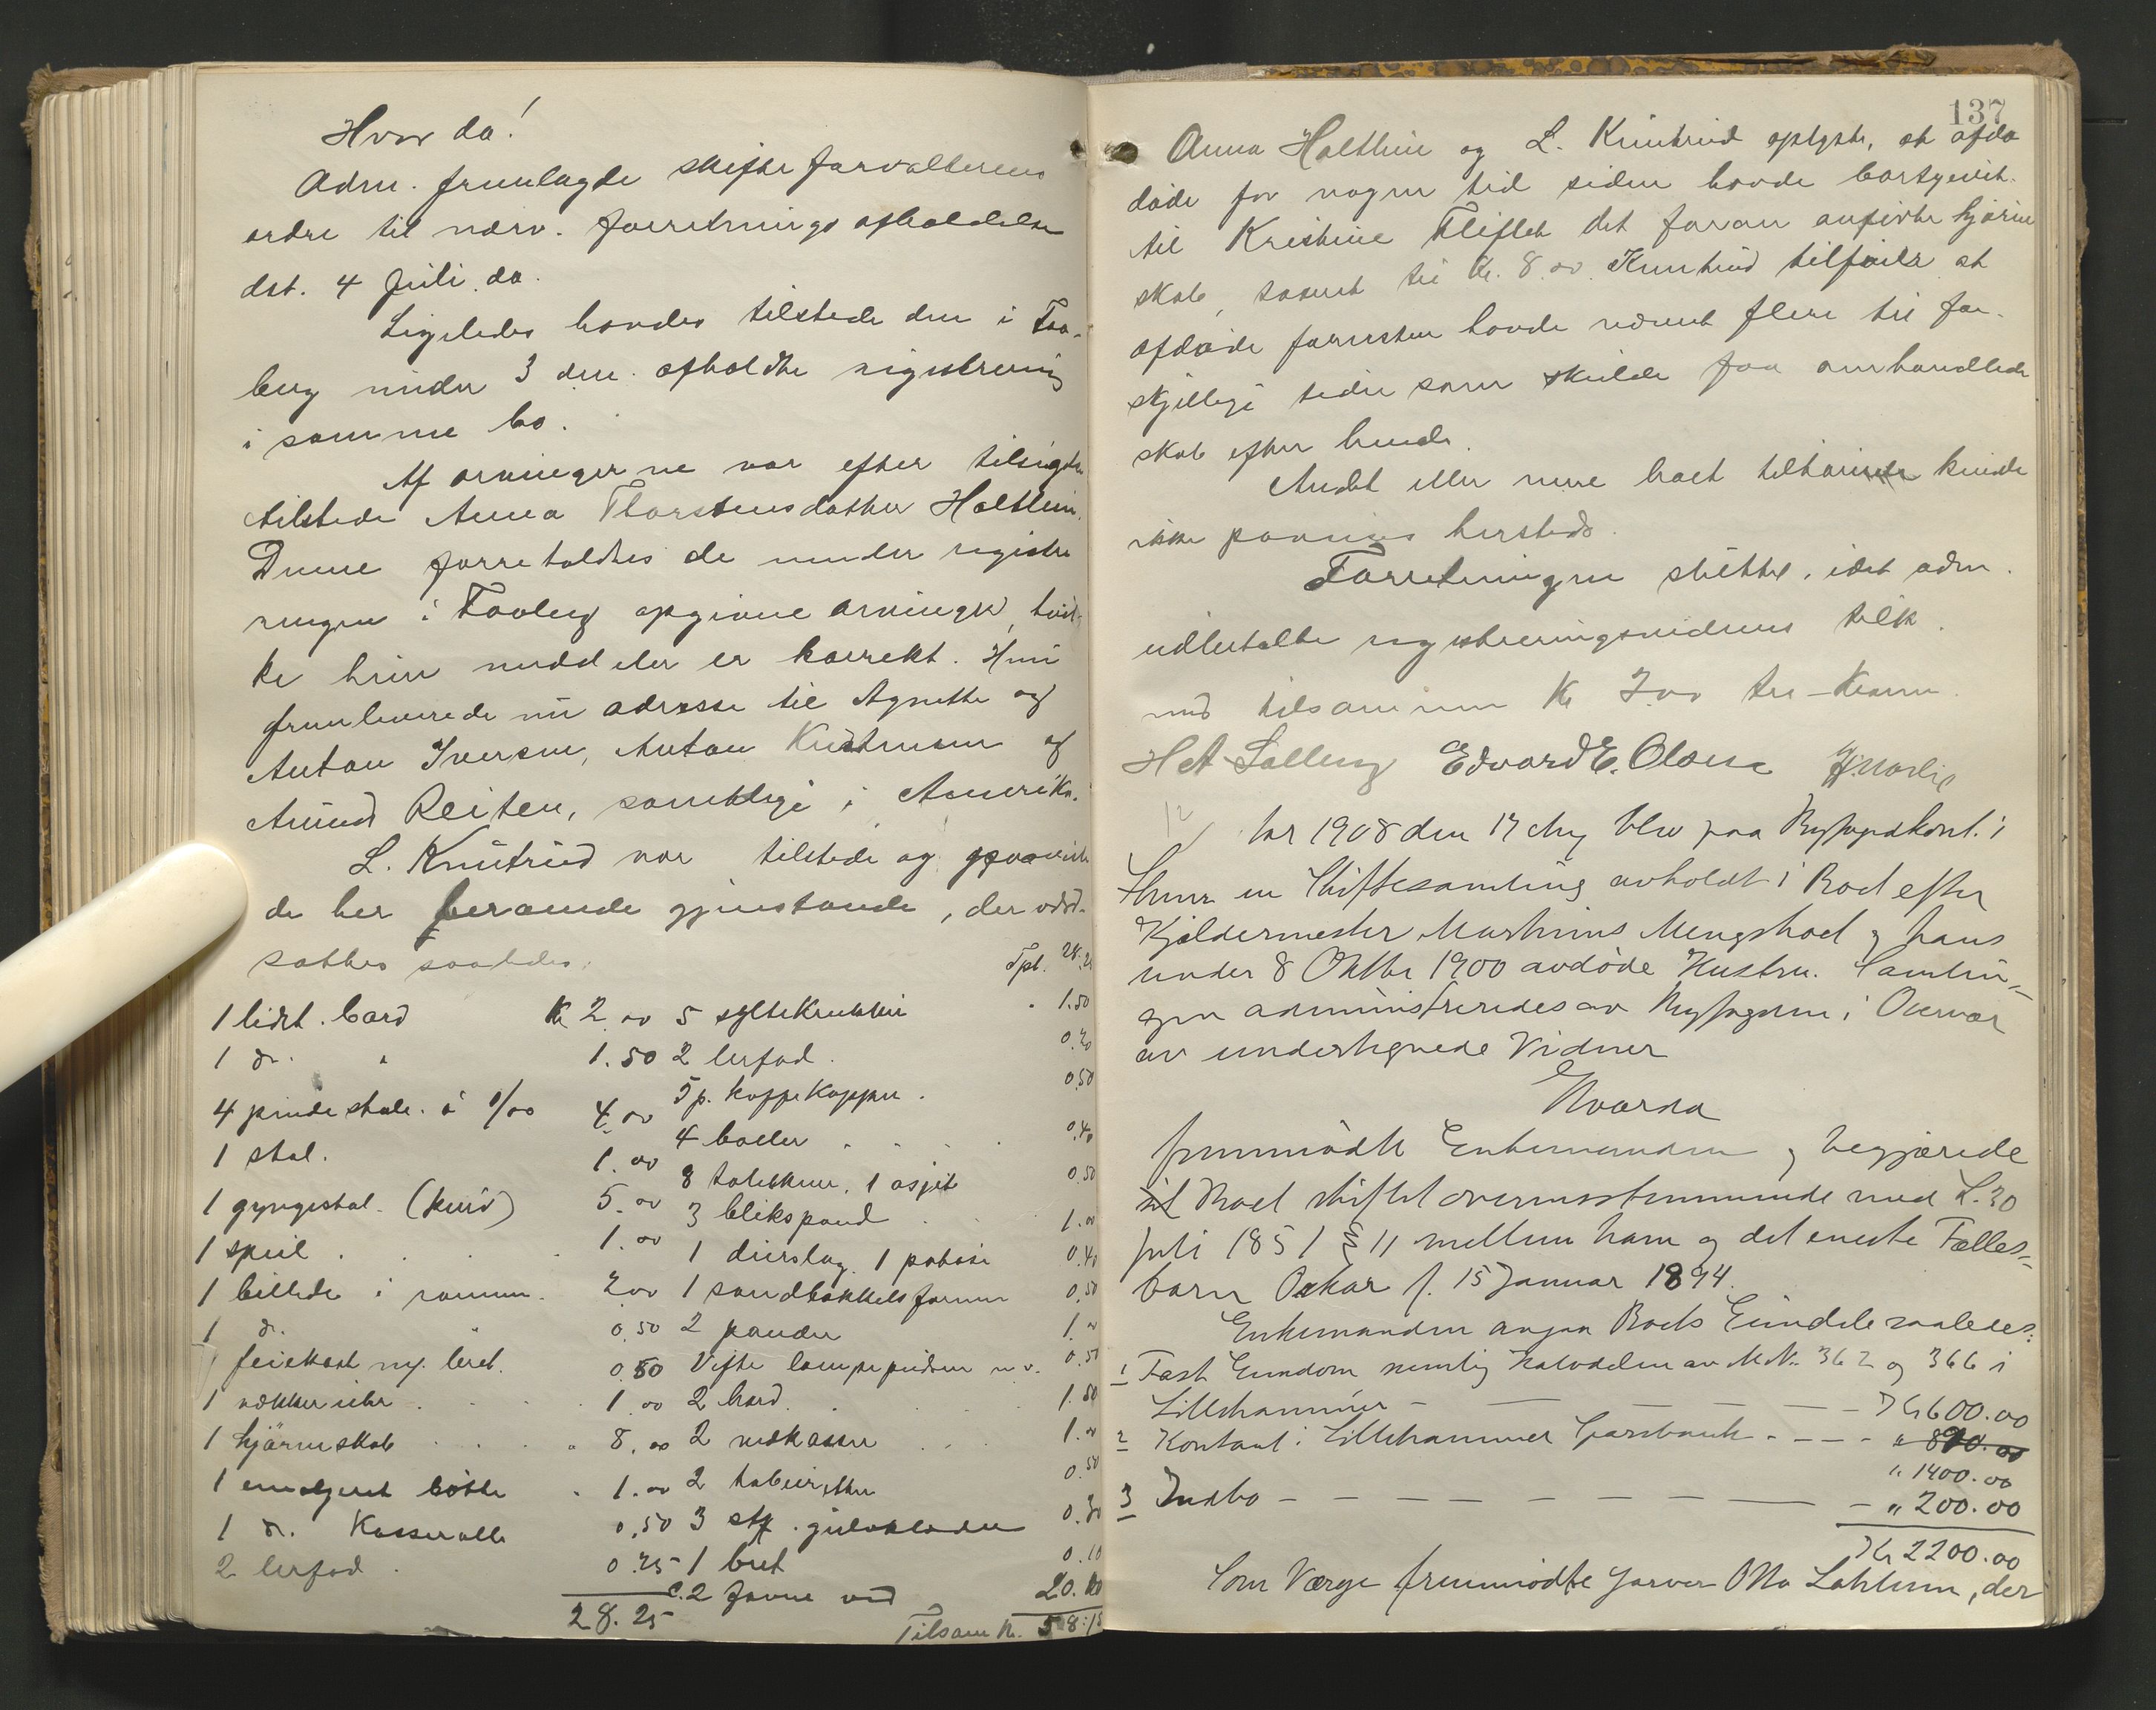 Hvor da!
Adm. fremlagde skifteforvalterens
ordre til nærv. forretnings afholdelse
dat. 4 Juli da.
Ligeledes havdes tilstede den i Faa-
berg under 3 den. afholdte registrering
i samme bo.
Af arvingerne var efter tilsigelse
tilstede Anna Thorstensdatter Holthein.
Denne foreholdtes de under registre
ringen i Faaberg opgivne arvinger, hvil-
ke hun meddeler er korrekt. Hun
fremleverede nu adresse til Agnethe og
Anton Iversen, Anton Kristensen og
Amund Reiten, samtlige i Amerika.
L. Knutrud var tilstede og paaviste
de her beroende gjenstande, der værd-
sattes saaledes:
Tpt. 28.25
1 lidet bord Kr 2.00 5 syltekrukker 1.50
1 do. " 1.50 2 lerfad. 0.20
4 pindestole à 1/00 4.00 5 p. kaffekopper. 0.50
1 stol. 1.00 4 boller 0.40
1 gyngestol. (kurv) 5.00 8 talerkner, 1 asjet 0.50
1 speil 1.00 3 blikspand 1.00
1 billede i ramme. 2.00 1 dørslag 1 0.40
1 do. 0.50 1 sandbakkelsformer 0.50
feiekost og bret. 0.50 2 pander 1.00
1 vækkerur 1.00 Vifte lampe 0.50
1 hjørneskab 8.00 2 bord. 1.50
1 emaljeret bøtte 1.00 2 vedkasser 1.00
1 do. Kasserolle 0.50 2 tabouretter 0.50
2 lerfad 0.25 3 stk. gulvklæder 0.30
28.25 1 bret 0.10
c. 2 favne ved 20.00
Tilsam Kr. 58.15
137
Anna Holthein og L. Knutrud oplyste, at afdø
døde for nogen tid siden havde bortgivet
til Kristine Fliflet det foran anførte hjørne
skab, taxeret til Kr. 8.00. Knutrud tilføiede at
afdøde forresten havde nævnt flere til for-
skjellige tider som skulde faa omhandlede
skab efter hende.
Andet eller mere boet tilhørende kunde
ikke paavises hersteds.
Forretningen sluttet, idet adm.
udbetalte registreringsvidnerne tilk.
med tilsammen Kr 2.00 to Kroner.
H A Salberg Edvard E. Olsen
Aar 1908 den 17 Aug blev paa Byfogdkont. i
Lhmr en Skiftesamling avholdt i Boet efter
Kjeldermester Martinius Mengshoel og hans
under 8 Oktbr 1900 avdøde Hustru. Samlin-
gen administreredes av Byfogden i Overvær
av undertegnede Vidner
Hvorda
fremmødte Enkemanden og begjærede
Boet skiftet overensstemmende med L. 30
Juli 1851 § 11 mellem ham og det eneste Fælles-
barn Oskar f. 15 Januar 1894.
Enkemanden angav Boets Eiendele saaledes:
1 Fast Eiendom nemlig Halvdelen av M.N. 362 og 366 i
Lillehammer - - - Kr 600.00
2 Kontant i Lillehammer Sparebank - - - " 800.00
" 1400.00
3 Indbo - - - - - - " 200.00
Kr 2200.00
Som Værge fremmødte Garver Otto Lahlum, der